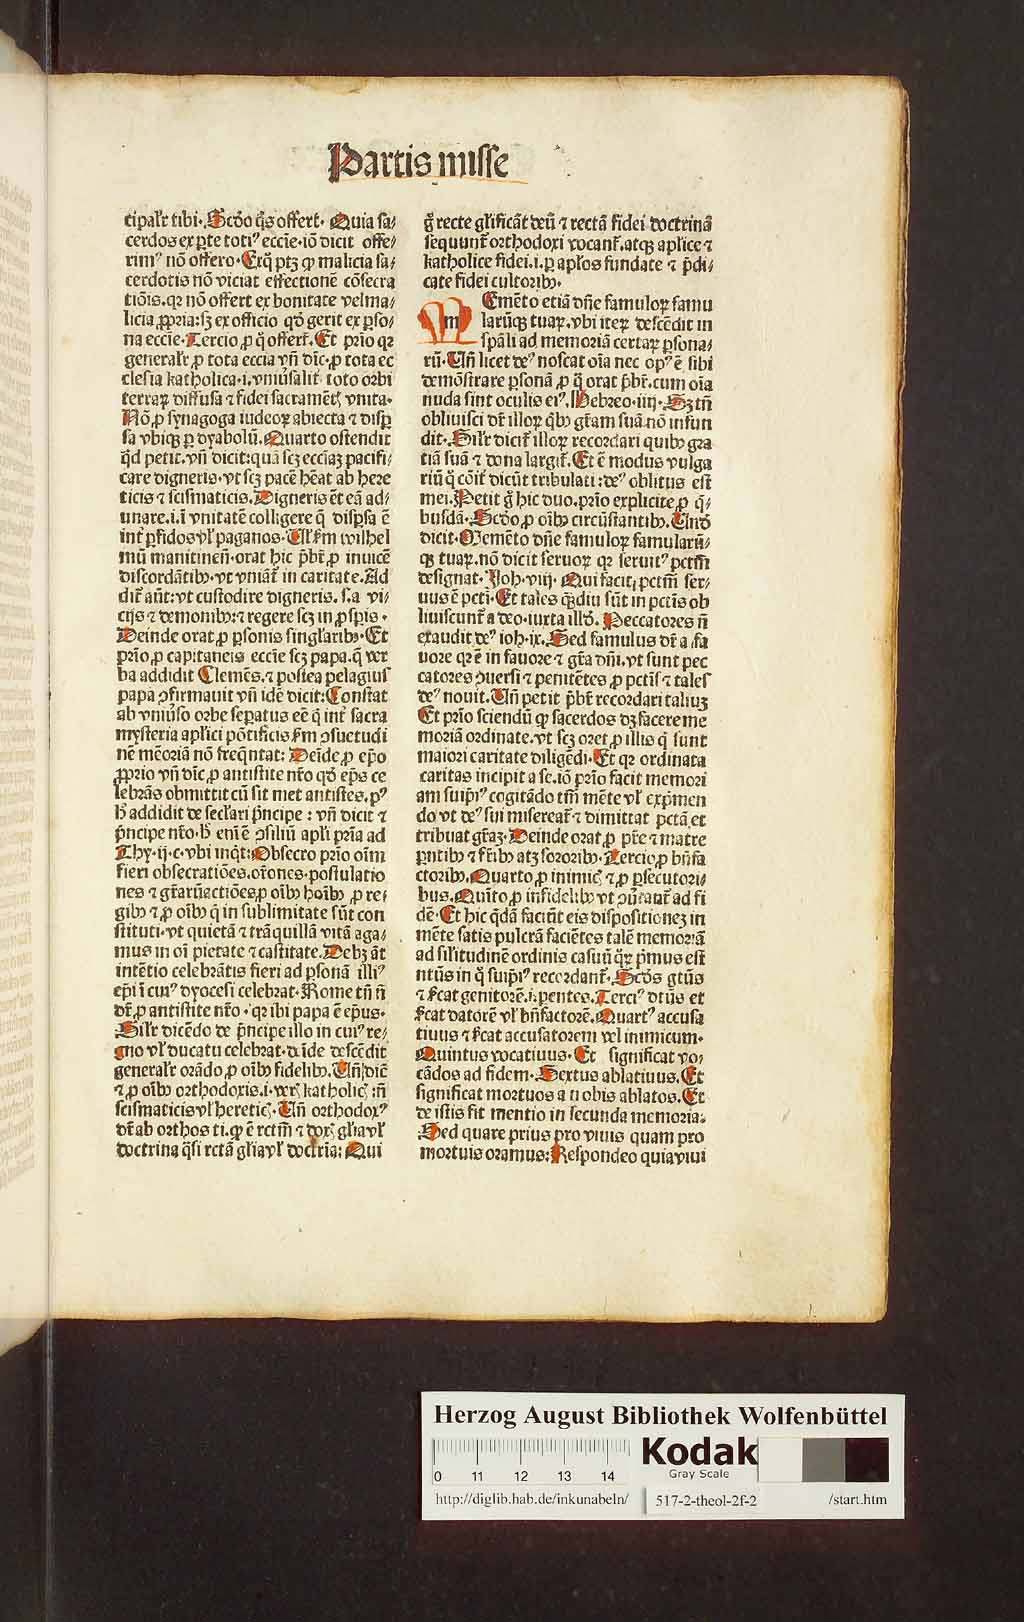 Partis misse
cipalr̄ tibi. Scd̄o q̄s offert̄. Quia sa⸗
cerdos ex ꝑte totiꝰ eccīe. iō dicit offe⸗
rimꝰ nō offero. Exq̄ ptꝫ ꝙ malicia sa⸗
cerdotis nō viciat effectionē cōsecra
tiōis. qꝛ nō offert ex bonitate vel ma⸗
licia ꝓpria: sꝫ ex officio qd̄ gerit ex ꝑso⸗
na eccīe. Tercio ꝓ q̄ offert̄. Et prīo qꝛ
generalr̄ ꝓ tota eccīa vn̄ dīc. ꝓ tota ec
clesia katholica. i. vniūsalit̄ toto orbi
terraꝝ diffusa ⁊ fidei sacramētꝭ vnita.
Nō ꝓ synagoga iudeoꝝ abiecta ⁊ disꝑ
sa vbiqꝫ ꝑ dyabolū. Quarto ostendit
qd̄ petit. vn̄ dicit: quā scꝫ eccīaꝫ pacifi⸗
care digneris. vt scꝫ pacē hēat ab here
ticis ⁊ scismaticis. Digneris ēt eā ad⸗
unare. i. ī vnitatē colligere q̄ disꝑsa ē
int̄ ꝑfidos vl̓ paganos. Vl̓ sm̄ wilhel
mū manitinen̄. orat hic p̄bt̄ ꝓ inuicē
discordātibꝫ. vt vniāt̄ in caritate. Ad
dit̄ aūt: vt custodire digneris. s. a vi⸗
cijs ⁊ demonibꝫ: ⁊ regere scꝫ in ꝓspis.
Deinde orat ꝓ ꝑsonis singl̓aribꝫ. Et
prīo ꝓ capitaneis eccīe scꝫ papa. q̄ ver
ba addidit Clemēs. ⁊ postea pelagius
papa ꝯfirmauit vn̄ idē dicit: Constat
ab vniūso orbe separatus eē q̄ int̄ sacra
mysteria apl̓ici pōtificis sm̄ ꝯsuetudi
nē mēoriā nō freq̄ntat: Deīde ꝓ ep̄o
ꝓprio vn̄ dīc ꝓ antistite nr̄o qd̄ ep̄s ce
lebrās obmittit cū sit met antistes. pꝰ
h̄ addidit de secl̓ari p̄ncipe: vn̄ dicit ⁊
p̄ncipe nr̄o. h̄ enī ē ꝯsiliū apl̓i prīa ad
Thy. ij. c. vbi inqt̄: Obsecro prīo oīm
fieri obsecratiōes. or̄ones. postulatio
nes ⁊ gr̄aꝝactiōes ꝓ oībꝫ hoībꝫ ꝓ re⸗
gibꝫ ⁊ ꝓ oībꝫ q̄ in sublimitate sūt con
stituti. vt quietā ⁊ trāquillā vitā aga⸗
mus in oī pietate ⁊ castitate. Debꝫ āt
intētio celebrātis fieri ad ꝑsonā illiꝰ
ep̄i ī cuiꝰ dyocesi celebrat. Rome tn̄ n̄
dr̄ ꝓ antistite nr̄o. qꝛ ibi papa ē ep̄us.
Silr̄ dicēdo de p̄ncipe illo in cuiꝰ re⸗
gno vl̓ ducatu celebrat. deīde descēdit
generalr̄ orādo ꝓ oībꝫ fidelibꝫ. Vn̄ dīc
⁊ ꝓ oībꝫ orthodoxis. i. verꝭ katholicꝭ: n̄
scismaticis vl̓ hereticꝭ. Vn̄ orthodoxꝰ
dr̄ ab orthos ti. ꝙ ē rctm̄ ⁊ doxꝭ gl̓ia vl̓
doctrina q̄si rctā gl̓ia vl̓ doctrīa: Qui
g̊ recte gl̓ificāt deū ⁊ rectā fidei doctrinā
sequūnt̄ orthodoxi vocant̄. atqꝫ apl̓ice ⁊
katholice fidei. i. ꝑ apl̓os fundate ⁊ p̄di⸗
cate fidei cultoribꝫ.
Memēto etiā dn̄e famuloꝝ famu
larūqꝫ tuaꝝ. vbi iteꝝ descēdit in
sp̄ali ad memoriā certaꝝ ꝑsona⸗
rū. Vn̄ licet deꝰ noscat oīa nec opꝰ ē sibi
demōstrare ꝑsonā ꝓ q̄ orat p̄bt̄. cum oīa
nuda sint oculis eiꝰ. Hebreo. iiij. Sꝫ tn̄
obliuisci dr̄ illoꝝ qͥbꝫ gr̄am suā nō infun
dit. Silr̄ dicit̄ illoꝝ recordari quibꝫ gra
tiā suā ⁊ dona largit̄. Et ē modus vulga
riū q̄ cōit̄ dicūt tribulati: deꝰ oblitus est
mei. Petit g̊ hic duo. prīo explicite ꝓ q̄⸗
busdā. Scd̄o ꝓ oībꝫ circūstantibꝫ. Vn̄
dicit. Memēto dn̄e famuloꝝ famularū⸗
qꝫ tuaꝝ. nō dicit seruoꝝ qꝛ seruiꝰ pctm̄
designat. Joh. viij. Qui facit pctm̄ ser⸗
uus ē pcti. Et tales qͣdiu sūt in pctis ob
liuiscunt̄ a deo. iuxta illd̄. Peccatores n̄
exaudit deꝰ ioh. ix. Sed famulus dr̄ a fa
uore qꝛ ē in fauore ⁊ gr̄a dn̄i. vt sunt pec
catores ꝯuersi ⁊ penitētes ꝓ pctis ⁊ tales
deꝰ nouit. Vn̄ petit p̄bt̄ recordari taliuꝫ
Et prīo sciendū ꝙ sacerdos dꝫ facere me
moriā ordinate. vt scꝫ oret ꝓ illis q̄ sunt
maiori caritate diligēdi. Et qꝛ ordinata
caritas incipit a se. iō prīo facit memori
am suip̄iꝰ cogitādo tm̄ mēte vl̓ exp̄men
do vt deꝰ sui misereat̄ ⁊ dimittat pctā et
tribuat gr̄aꝫ. Deinde orat ꝓ pr̄e ⁊ matre
ꝑntibꝫ ⁊ fr̄ibꝫ atꝫ sororibꝫ. Tercio ꝓ bn̄fa
ctoribꝫ. Quarto ꝓ inimicꝭ ⁊ ꝓ ꝑsecutori⸗
bus. Quīto ꝓ infidelibꝫ vt ꝯūtant̄ ad fi
dē. Et hic qͥdā faciūt eis dispositioneꝫ in
mēte satis pulcrā faciētes talē memoriā
ad silitudinē ordinis casuū qͦꝝ p̄mus est
ntūs in q̄ suip̄iꝰ recordant̄. Scd̄s gtūs
⁊ sīcat genitorē. i. ꝑentes. Terciꝰ dtūs et
sīcat datorē vl̓ bn̄factorē. Quartꝰ accusa
tiuus ⁊ sīcat accusatorem vel inimicum.
Quintus vocatiuus. Et significat vo⸗
cādos ad fidem. Sextus ablatiuus. Et
significat mortuos a nobis ablatos. Et
de istis fit mentio in secunda memoria.
Sed quare prius pro viuis quam pro
mortuis oramus: Respondeo quia viui
Herzog August Bibliothek Wolfenbüttel
0 11 12 13 14
Kodak
Gray Scale
http://diglib.hab.de/inkunabeln/ 517-2-theol-2f-2 /start.htm